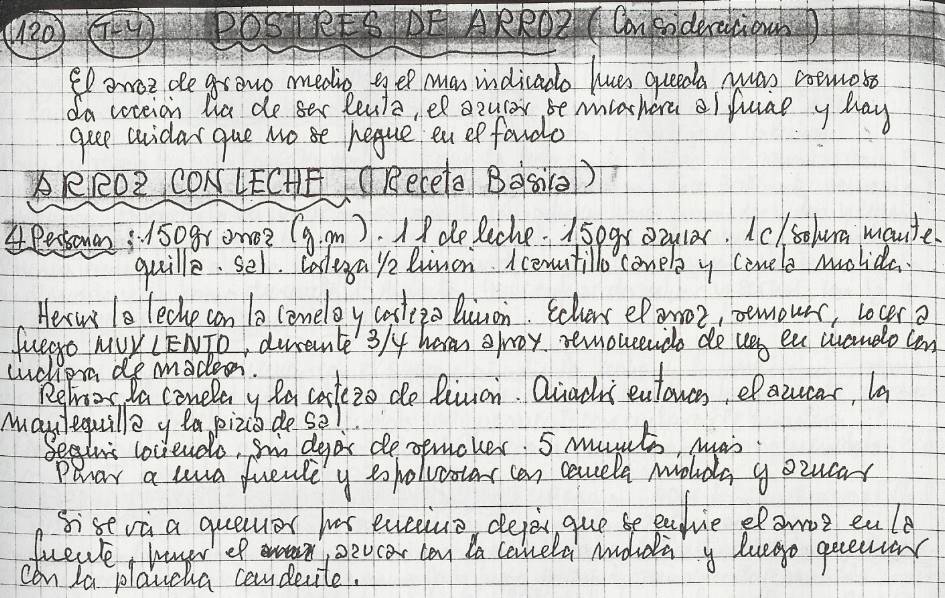 120 T-4 POSTRES DE ARROZ (Consideraciones)
El arroz de grano medio es el mas indicado pues queda mas cremoso
La cocción ha de ser lenta, el azucar se incorpora al final y hay
que cuidar que no se pegue en el fondo
ARROZ CON LECHE (Receta Básica)
4 Personas : 150gr arroz (g.m). 1 l de leche. 150gr azucar. 1c/sopera mante-
quilla. Sal. Corteza 1/2 limon. 1 canutillo canela y canela molida.
Hervir la leche con la canela y corteza limon. Echar el arroz, remover, cocer a
fuego MUY LENTO, durante 3/4 horas aprox. removiendo de vez en cuando con
cuchara de madera.
Retirar la canela y la corteza de limon. Añadir entonces, el azucar, la
mantequilla y la pizca de sal.
Seguir cociendo, sin dejar de remover. 5 minutos, mas.
Pasar a una fuente y espolvorear con canela molida y azucar
Si se vá a quemar por encima, dejar que se enfrie el arroz en la
fuente, poner el azucar con la canela molida y luego quemar
con la plancha candente.